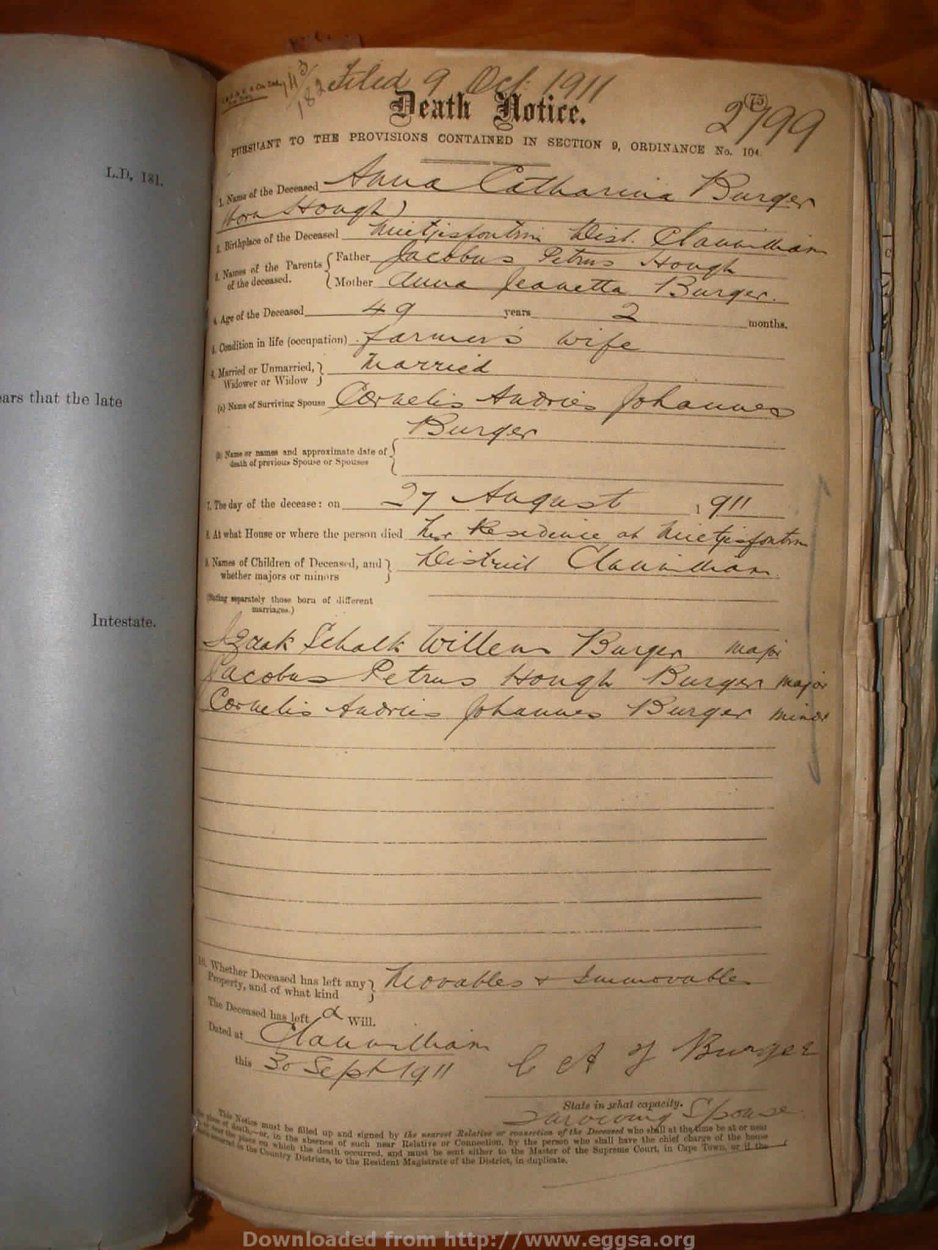 L.D. 181.
ears that the late
Intestate.
113/182
Filed 9 Oct. 1911
Death Notice.
(75)
2799
PURSUANT TO THE PROVISIONS CONTAINED IN SECTION 9, ORDINANCE No. 104.
1. Name of the Deceased Anna Catharina Burger
(born Hough)
2. Birthplace of the Deceased Dist. Clanwilliam
3. Names of the Parents of the deceased. Father Jacobus Petrus Hough
Mother Anna Jeanetta Burger.
4. Age of the Deceased 49 years 2 months.
5. Condition in life (occupation) farmer's wife
6. Married or Unmarried, Widower or Widow Married
(a) Name of Surviving Spouse Cornelis Andries Johannes
Burger
(b) Name or names and approximate date of death of previous Spouse or Spouses
7. The day of the decease: on 27 August 1911
8. At what House or where the person died her Residence at
9. Names of Children of Deceased, and whether majors or minors District Clanwilliam.
(Stating separately those born of different marriages.)
Izaak Schalk Willem Burger major
Jacobus Petrus Hough Burger major
Cornelis Andries Johannes Burger minor
10. Whether Deceased has left any Property, and of what kind Movables & Immovables
The Deceased has left a Will.
Dated at Clanwilliam
this 30 Sept 1911 C A J Burger
State in what capacity.
Surviving Spouse
This Notice must be filled up and signed by the nearest Relative or connection of the Deceased who shall at the time be at or near
the place of death,—or, in the absence of such near Relative or Connection, by the person who shall have the chief charge of the house
or of the place on which the death occurred, and must be sent either to the Master of the Supreme Court, in Cape Town, or if the
death occurred in the Country Districts, to the Resident Magistrate of the District, in duplicate.
Downloaded from http://www.eggsa.org